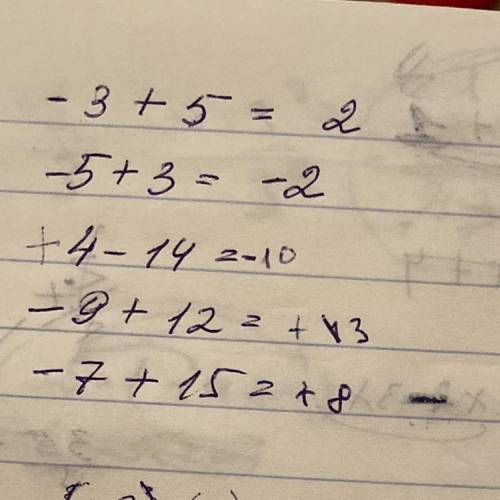 -3 + 5 = 2
-5 + 3 = -2
+4 - 14 = -10
-9 + 12 = +3
-7 + 15 = +8